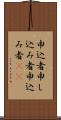 申込者申し
込み者申込
み者